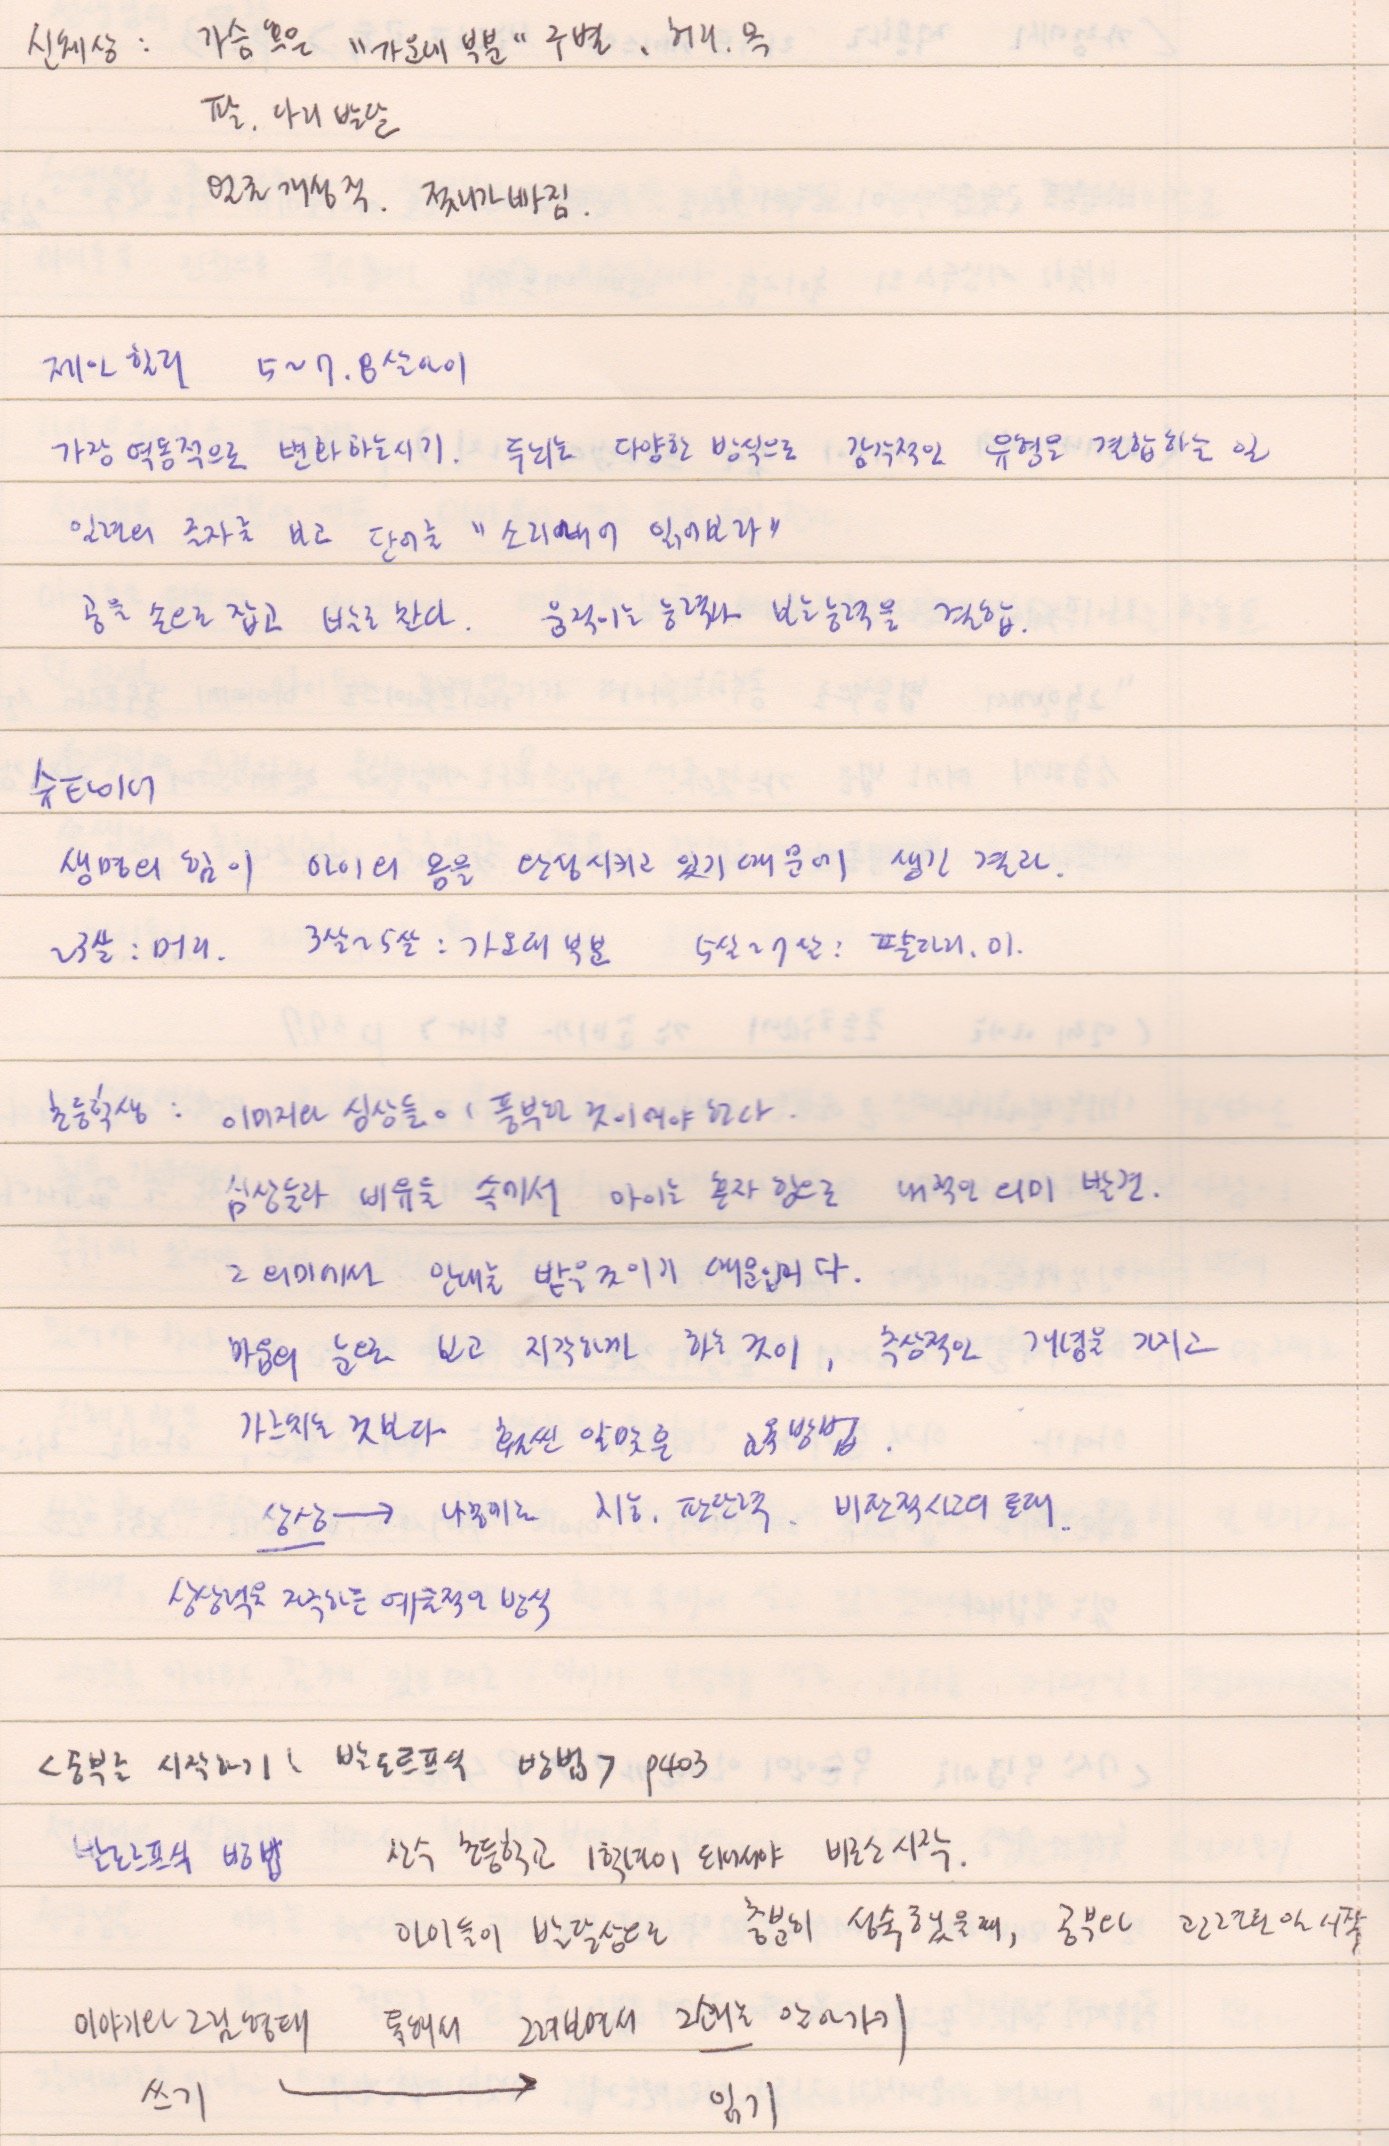 신체상 : 가슴 혹은 "가운데 부분" 구별, 허리. 목
팔. 다리 발달
얼굴 개성적. 젖니가 빠짐.
제인 힐리 5~7.8살 아이
가장 역동적으로 변화하는 시기. 두뇌는 다양한 방식으로 감각적인 유형을 결합하는 일
일련의 글자를 보고 단어를 "소리내어 읽어보라"
공을 손으로 잡고 발로 찬다. 움직이는 능력과 보는 능력을 결합.
슈타이너
생명의 힘이 아이의 몸을 단장시키고 있기 때문에 생긴 결과.
~3살 : 머리. 3살~5살 : 가운데 부분 5살~7살 : 팔다리. 이.
초등학생 : 이미지와 심상들이 풍부한 것이어야 한다.
심상들과 비유들 속에서 아이는 혼자 힘으로 내적인 의미 발견.
그 의미에서 안내를 받을 것이기 때문입니다.
마음의 눈으로 보고 지각하게끔 하는 것이, 추상적인 개념을 가지고
가르치는 것보다 훨씬 알맞은 교육방법.
상상 → 나중에도 지능. 판단력. 비판적 사고의 토대.
상상력을 자극하는 예술적인 방식
<공부를 시작하기 : 발도르프식 방법> p403
발도르프식 방법 산수 초등학교 1학년이 되어서야 비로소 시작.
아이들이 발달상으로 충분히 성숙했을 때, 공부와 관련된 일 시작
이야기와 그림 형태 통해서 그려보면서 글씨를 알아가기
쓰기 → 읽기